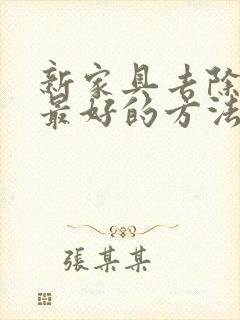 新家具去除
最好的方法
張某某